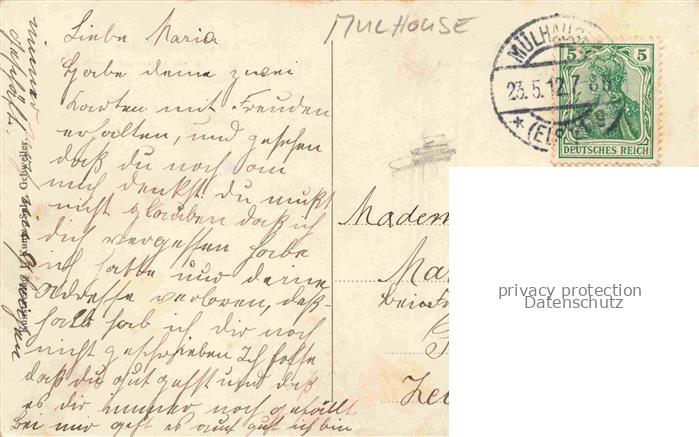 MULHOUSE
Liebe Maria
Habe deine zwei
Karten mit Freuden
erhalten, und gesehen
daß du noch an
mich denkst. du mußt
nicht glauben daß ich
dich vergessen habe
ich hatte nur deine
Adresse verloren, deß-
halb hab ich dir noch
nicht geschrieben Ich hoffe
daß du gut gehst und daß
es dir immer noch gefällt
bei mir geht es auch gut ich bin
immer
Gebweiler
MÜLHAUS
23.5.12.7-8
* (ELS
5 5
DEUTSCHES REICH
Madem
Ma
bei
privacy protection
Datenschutz